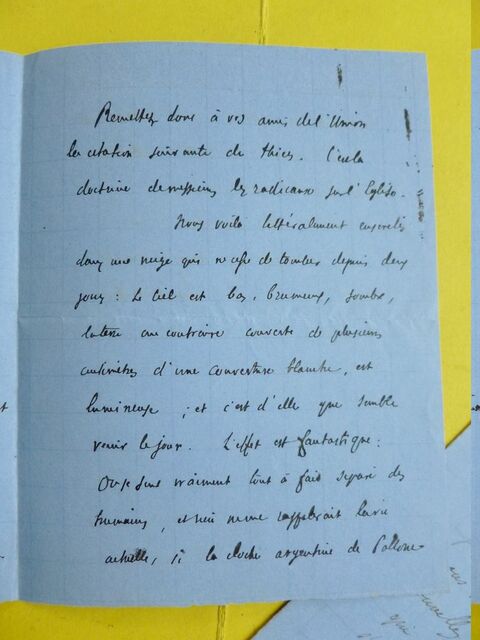 Remettez donc à vos amis de l'Union
la citation suivante de Thiers. C'est la
doctrine de messieurs les radicaux sur l'Église.
Nous voilà littéralement ensevelis
dans une neige qui ne cesse de tomber depuis deux
jours : le ciel est bas, brumeux, sombre,
la terre au contraire couverte de plusieurs
centimètres d'une couverture blanche, est
lumineuse ; et c'est d'elle que semble
venir le jour. L'effet est fantastique :
On se sent vraiment tout à fait séparé des
humains, et rien ne me rappellerait la vie
actuelle, si la cloche argentine de